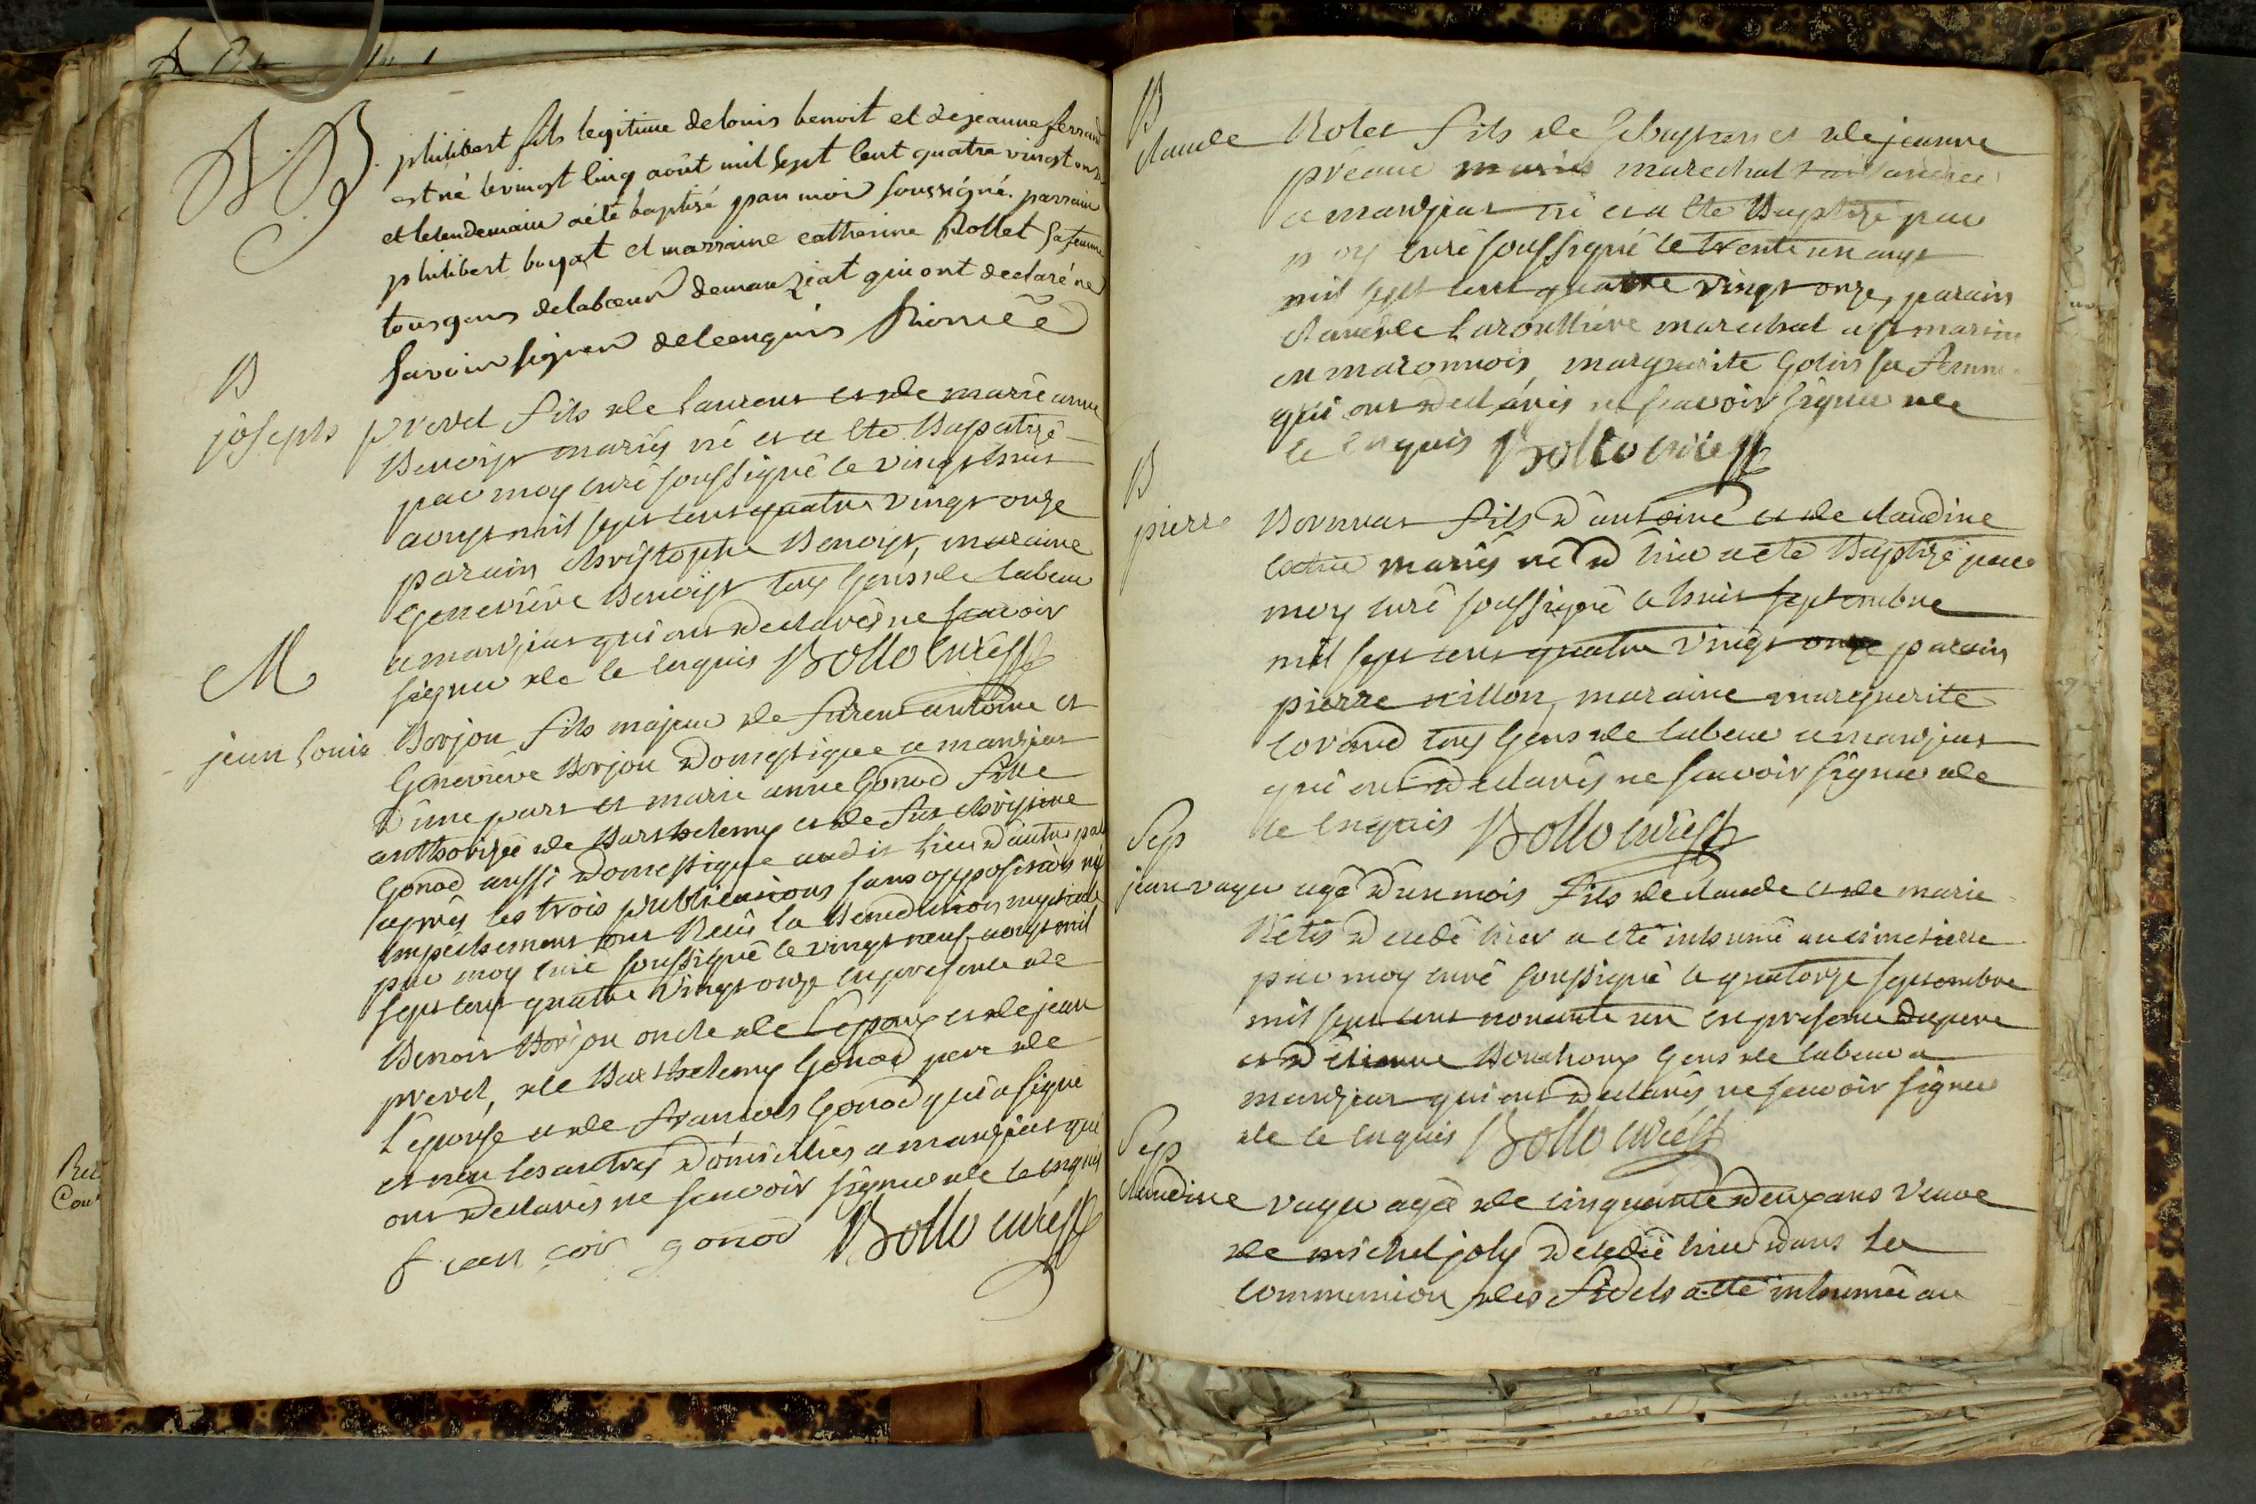 B.
philibert fils legitime de louis benoit et de jeanne ferrand
est né le vingt cinq août mil sept cent quatre vingt onze
et le lendemain a été baptisé par moi soussigné. parrain
philibert buyat et marraine catherine Rollet sa femme
tous gens de labœur de manziat qui ont declaré ne
savoir signer de ce enquis
B
joseph prevel fils de laurent et de marie anne
Benoist mariés né et a été Bapatizé
par moy curé soussigné le vingt huit
aoust mil sept cent quatre vingt onze
parain christophe Benoist, maraine
Genevieve Benoist tous Gens de labeur
a manziat qui ont declarés ne scavoir
signer de ce enquis Bollo curé
M
jean louis Borjon fils majeur de furent antoine et
Genevieve Borjon domestique a manziat
d'une part et marie anne Gonod fille
authorizée de Barthelemy et de fut christine
Gonod aussi domestique audit lieu d'autre par
après les trois publications sans opposition ni
empêchement ont Recûs la Benediction nuptiale
par moy curé soussigné le vingt neuf aoust mil
sept cent quatre vingt onze en presence de
Benoit Borjon oncle de l'epoux et de jean
prevel, de Barthelemy Gonod pere de
l'épouse et de francois Gonod qui a signé
et non les autres domiciliés a manziat qui
ont declarés ne scavoir signer de ce enquis
francois gonod Bollo curé
B
claude Rolet fils de et de jeanne
préaud mariés marechal
a manziat né et a été Baptizé par
moy curé soussigné le trente un aoust
mil sept cent quatre vingt onze, parain
claude laroulliere marechal a st martin
en maconnois marguerite Golin sa femme
qui ont declarés ne scavoir signer de
ce enquis Bollo curé
B
pierre Bornnat fils d'antoine et de claudine
catin mariés né d'hier a été Baptizé par
moy curé soussigné le huit septembre
mil sept cent quatre vingt onze parain
pierre nillon, maraine marguerite
lorand tous Gens de labeur a manziat
qui ont declarés ne scavoir signer de
ce enquis Bollo curé
Sep
jean vayer agé d'un mois fils de claude et de marie
decedé hier a été inhumé au cimetierre
par moy curé soussigné le quatorze septembre
mil sept cent nonante un en presence du pere
et d'étienne Bouchoux Gens de labeur a
manziat qui ont declarés ne scavoir signer
de ce enquis Bollo curé
Sep
Claudine vayer agée de cinquante deux ans veuve
de michel joly decedée hier dans la
communion des fidels a été inhumée au